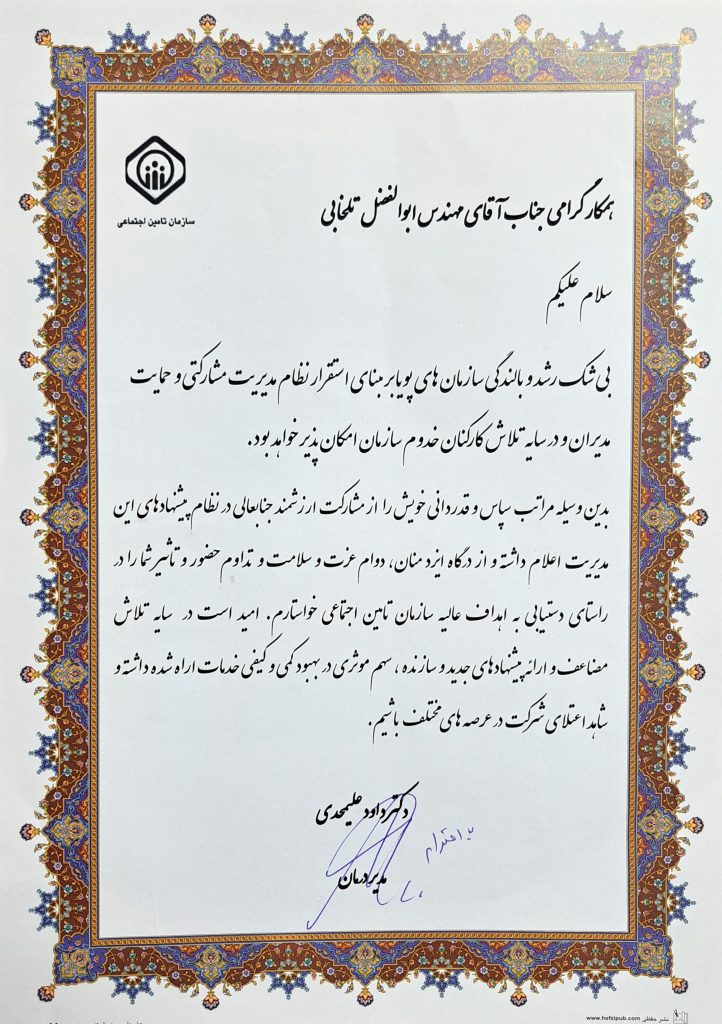 سازمان تامین اجتماعی
همکار گرامی جناب آقای مهندس ابوالفضل تلخابی
سلام علیکم
بی شک رشد و بالندگی سازمان های پویا بر مبنای استقرار نظام مدیریت مشارکتی و حمایت
مدیران و در سایه تلاش کارکنان خدوم سازمان امکان پذیر خواهد بود.
بدین وسیله مراتب سپاس و قدردانی خویش را از مشارکت ارزشمند جنابعالی در نظام پیشنهادهای این
مدیریت اعلام داشته و از درگاه ایزد منان، دوام عزت و سلامت و تداوم حضور و تاثیر شما را در
راستای دستیابی به اهداف عالیه سازمان تامین اجتماعی خواستارم. امید است در سایه تلاش
مضاعف و ارائه پیشنهادهای جدید و سازنده، سهم موثری در بهبود کمی و کیفی خدمات اراه شده داشته و
شاهد اعتلای شرکت در عرصه های مختلف باشیم.
دکتر داود علیمحدی
با احترام
مدیر درمان
نشر حفظی www.hefzipub.com